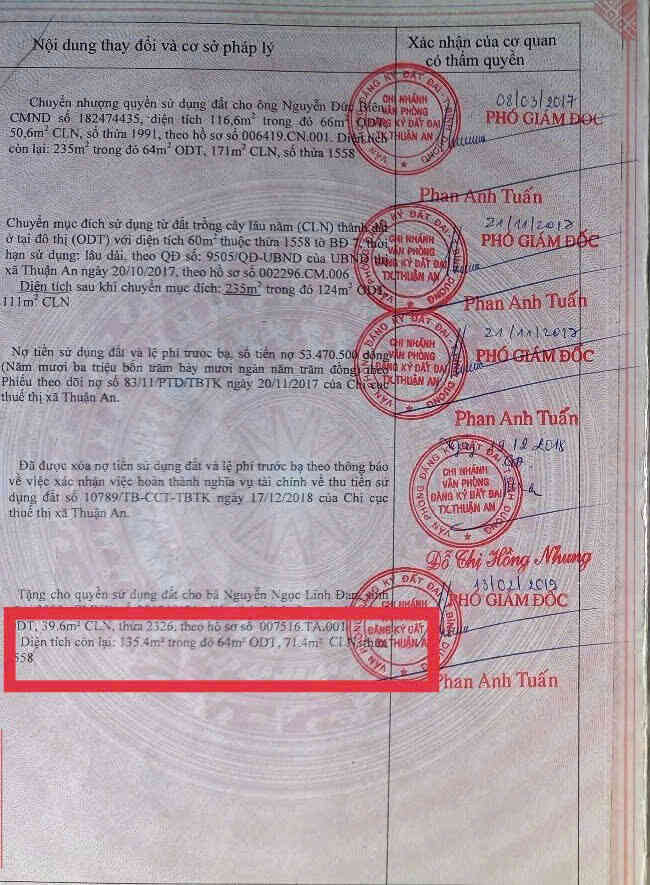 Nội dung thay đổi và cơ sở pháp lý
Xác nhận của cơ quan
có thẩm quyền
Chuyển nhượng quyền sử dụng đất cho ông Nguyễn Đức Biên,
CMND số 182474435, diện tích 116,6m² trong đó 66m² ODT,
50,6m² CLN, số thửa 1991, theo hồ sơ 006419.CN.001. Diện tích
còn lại: 235m² trong đó 64m² ODT, 171m² CLN, số thửa 1558
08/03/2017
PHÓ GIÁM ĐỐC
CHI NHÁNH
VĂN PHÒNG
ĐĂNG KÝ ĐẤT ĐAI
TX.THUẬN AN
Phan Anh Tuấn
Chuyển mục đích sử dụng từ đất trồng cây lâu năm (CLN) thành đất
ở tại đô thị (ODT) với diện tích 60m² thuộc thửa 1558 tờ BĐ 7, thời
hạn sử dụng: lâu dài, theo QĐ số: 9505/QĐ-UBND của UBND thị
xã Thuận An ngày 20/10/2017, theo hồ sơ 002296.CM.006
Diện tích sau khi chuyển mục đích: 235m² trong đó 124m² ODT,
111m² CLN
21/11/2017
PHÓ GIÁM ĐỐC
CHI NHÁNH
VĂN PHÒNG
ĐĂNG KÝ ĐẤT ĐAI
TX.THUẬN AN
Phan Anh Tuấn
Nợ tiền sử dụng đất và lệ phí trước bạ, số tiền nợ 53.470.500 đồng
(Năm mươi ba triệu bốn trăm bảy mươi ngàn năm trăm đồng) theo
Phiếu theo dõi nợ số 83/11/PTD/TBTK ngày 20/11/2017 của Chi cục
thuế thị xã Thuận An.
21/11/2017
PHÓ GIÁM ĐỐC
CHI NHÁNH
VĂN PHÒNG
ĐĂNG KÝ ĐẤT ĐAI
TX.THUẬN AN
Phan Anh Tuấn
Đã được xóa nợ tiền sử dụng đất và lệ phí trước bạ theo thông báo
về việc xác nhận việc hoàn thành nghĩa vụ tài chính về thu tiền sử
dụng đất số 10789/TB-CCT-TBTK ngày 17/12/2018 của Chi cục
thuế thị xã Thuận An.
19.12.2018
CHI NHÁNH
VĂN PHÒNG
ĐĂNG KÝ ĐẤT ĐAI
TX.THUẬN AN
VĂN PHÒNG ĐĂNG KÝ ĐẤT ĐAI T.BÌNH DƯƠNG
Đỗ Chị Hồng Nhung
Tặng cho quyền sử dụng đất cho bà Nguyễn Ngọc Linh Đan,
13/02/2019
PHÓ GIÁM ĐỐC
DT, 39.6m² CLN, thửa 2326, theo hồ sơ số 007516.TA.001
Diện tích còn lại: 135.4m² trong đó 64m² ODT, 71.4m² CLN, thửa
558
ĐĂNG KÝ ĐẤT
TX.THUẬN A
Phan Anh Tuấn